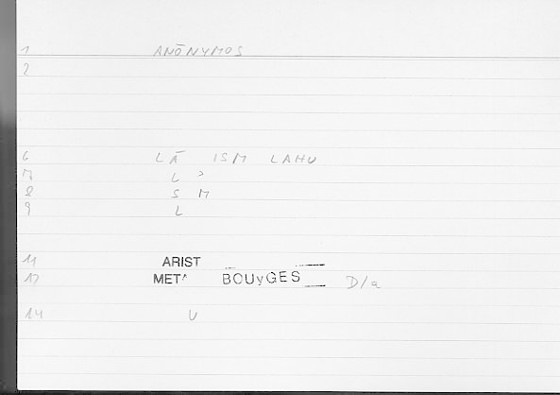 1 ANŌNYMOS
2
6 LĀ ISM LAHU
7 L ʾ
8 S M
9 L
11 ARIST
12 META BOUYGES D/a
14 U